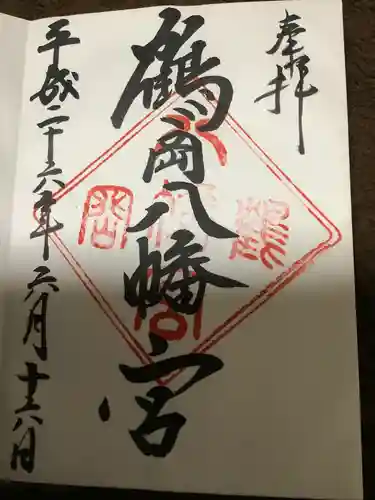 奉拝
鶴岡八幡宮
平成二十六年六月十六日